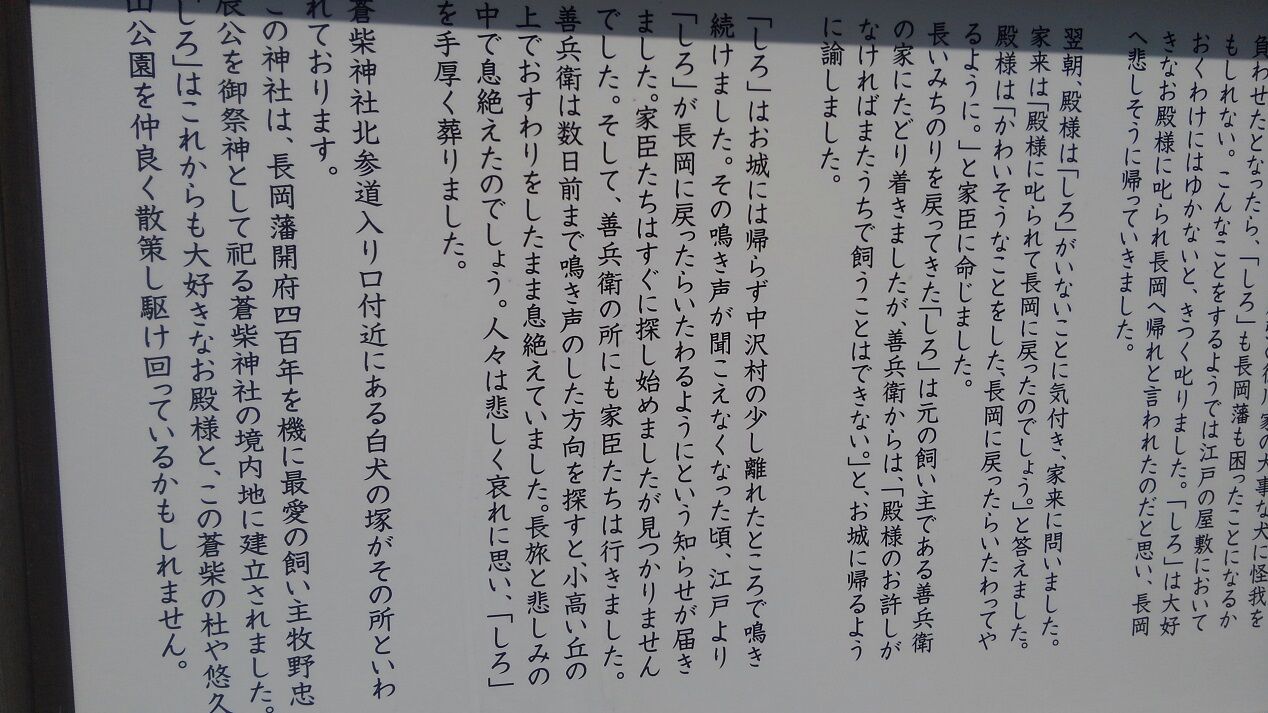 負わせたとなったら、「しろ」も長岡藩も困ったことになるか
もしれない。こんなことをするようでは江戸の屋敷において
おくわけにはゆかないと、きつく叱りました。「しろ」は大好
きなお殿様に叱られ長岡へ帰れと言われたのだと思い、長岡
へ悲しそうに帰っていきました。
翌朝、殿様は「しろ」がいないことに気付き、家来に問いました。
家来は「殿様に叱られて長岡に戻ったのでしょう。」と答えました。
殿様は「かわいそうなことをした、長岡に戻ったらいたわってや
るように。」と家臣に命じました。
長いみちのりを戻ってきた「しろ」は元の飼い主である善兵衛
の家にたどり着きましたが、善兵衛からは、「殿様のお許しが
なければまたうちで飼うことはできない。」と、お城に帰るよう
に諭しました。
「しろ」はお城には帰らず中沢村の少し離れたところで鳴き
続けました。その鳴き声が聞こえなくなった頃、江戸より
「しろ」が長岡に戻ったらいたわるようにという知らせが届き
ました。家臣たちはすぐに探し始めましたが見つかりません
でした。そして、善兵衛の所にも家臣たちは行きました。
善兵衛は数日前まで鳴き声のした方向を探すと、小高い丘の
上でおすわりをしたまま息絶えていました。長旅と悲しみの
中で息絶えたのでしょう。人々は悲しく哀れに思い、「しろ」
を手厚く葬りました。
蒼柴神社北参道入り口付近にある白犬の塚がその所といわ
れております。
この神社は、長岡藩開府四百年を機に最愛の飼い主牧野忠
辰公を御祭神として祀る蒼柴神社の境内地に建立されました。
「しろ」はこれからも大好きなお殿様と、この蒼柴の杜や悠久
山公園を仲良く散策し駆け回っているかもしれません。